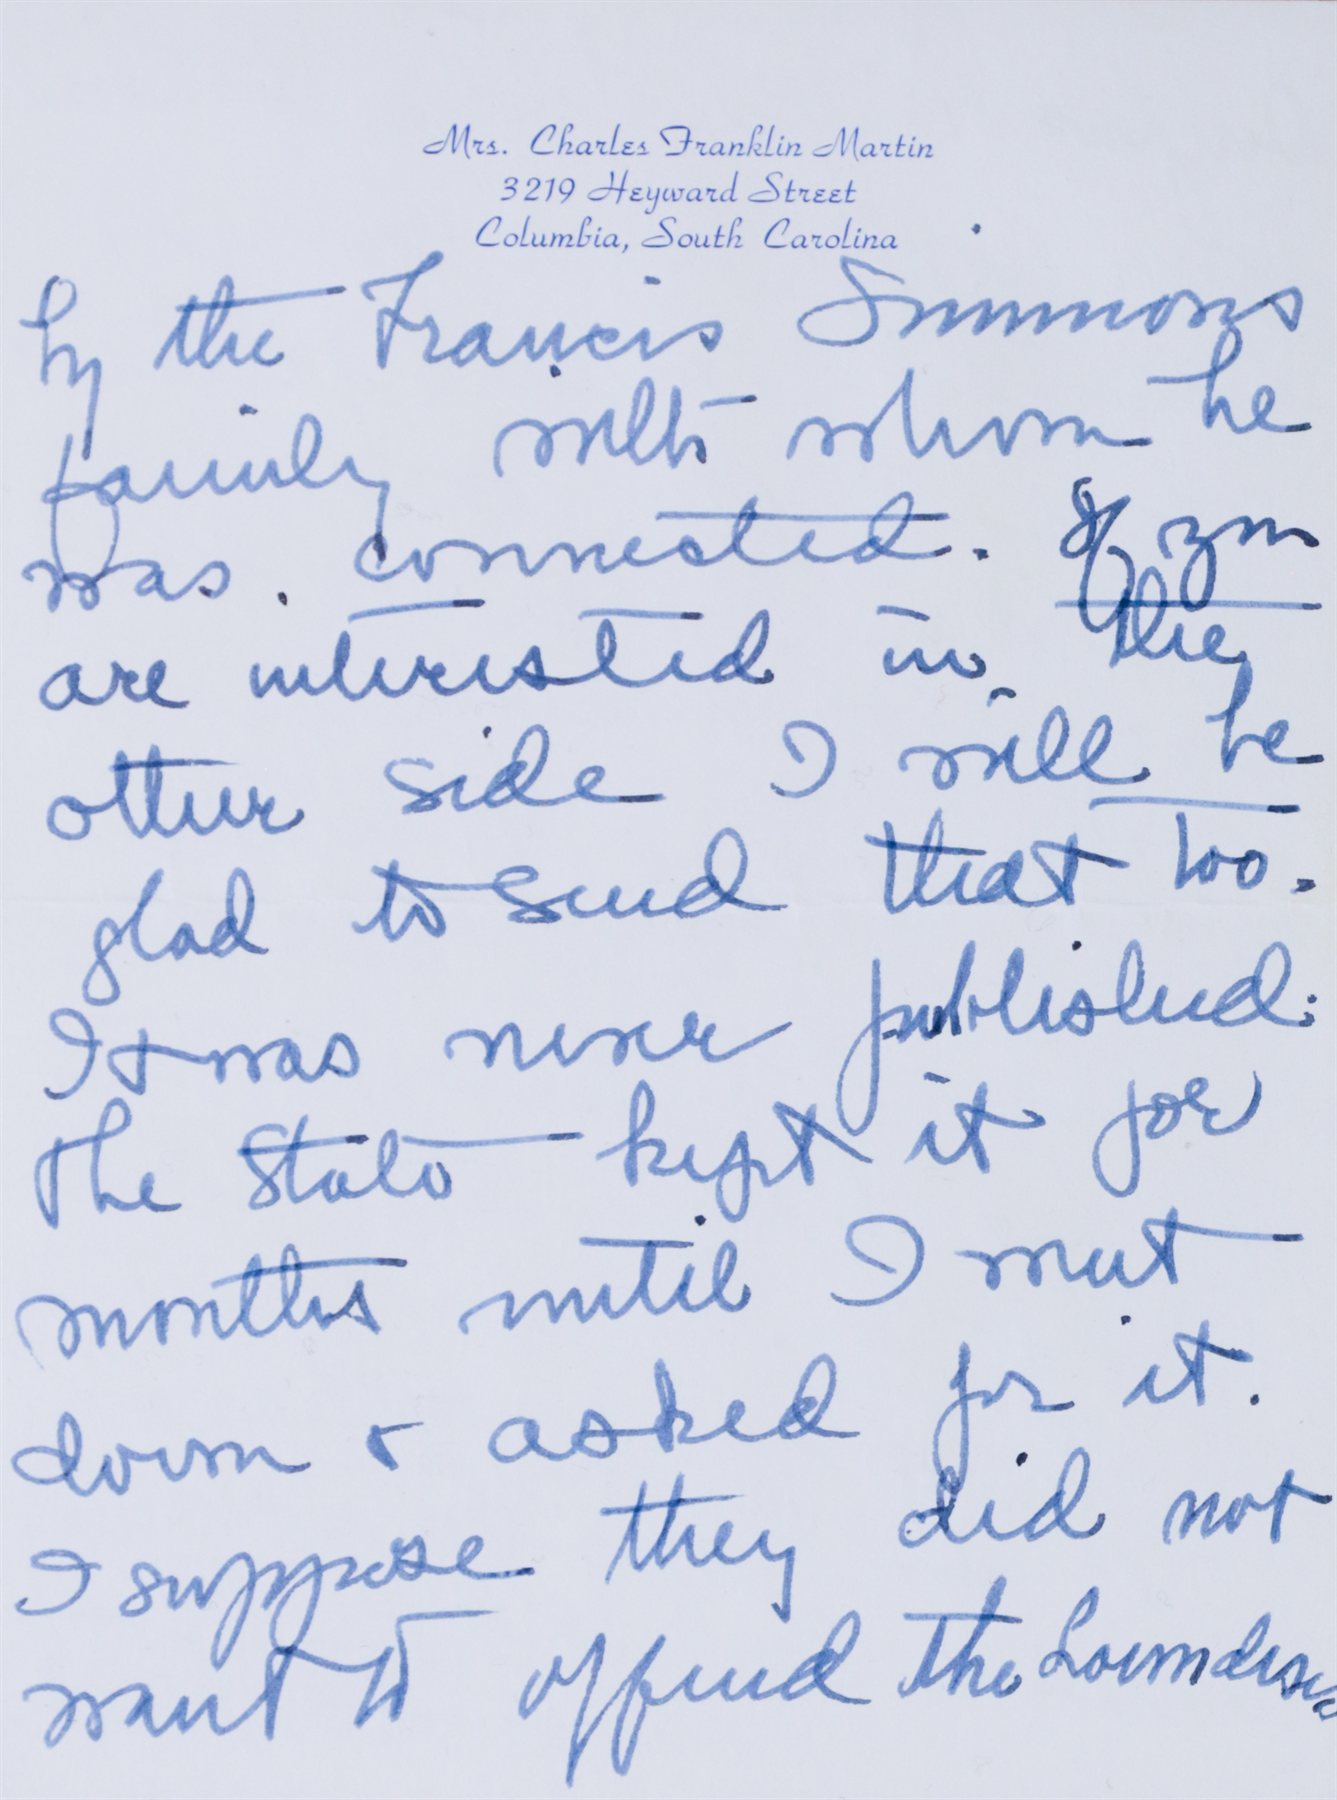 Mrs. Charles Franklin Martin
3219 Heyward Street
Columbia, South Carolina
by the Francis Simmons
family with whom he
was connected. If you
are interested in the
other side I will be
glad to send that too.
It was never published.
The State kept it for
months until I went
down & asked for it.
I suppose they did not
want to offend the Lowndeses